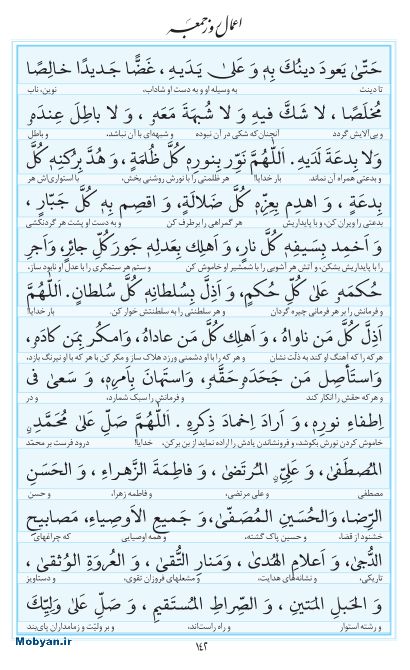 اعمال روز جمعه
حَتّىٰ يَعودَ دينُكَ بِهٖ وَ عَلىٰ يَدَيهِ ، غَضًّا جَديدًا خالِصًا
تا دینت به وسیله او و به دست او شاداب، نوین، ناب
مُخلَصًا ، لا شَكَّ فيهِ وَ لا شُبهَةَ مَعَهٗ ، وَ لا باطِلَ عِندَهٗ
و بی‌آلایش گردد آنچنان‌که شکی در آن نبوده و شبهه‌ای با آن نباشد، و باطل
وَلا بِدعَةَ لَدَيهِ. اَللّٰهُمَّ نَوِّر بِنورِهٖ كُلَّ ظُلمَةٍ ، وَ هُدَّ بِرُكنِهٖ كُلَّ
و بدعتی همراه آن نماند. بار خدایا! هر ظلمتی را با نورش روشنی بخش، با استواری‌اش هر
بِدعَةٍ ، وَ اهدِم بِعِزِّهٖ كُلَّ ضَلالَةٍ ، وَ اقصِم بِهٖ كُلَّ جَبّارٍ ،
بدعتی را ویران کن، و با پایداریش هر گمراهی را برطرف کن و به دست او پشت هر گردنکشی
وَ اَخمِد بِسَيفِهٖ كُلَّ نارٍ، وَ اَهلِك بِعَدلِهٖ جَورَ كُلِّ جائِرٍ، وَ اَجرِ
را با پایداریش بشکن، و آتش هر آشوبی را با شمشیر او خاموش کن و ستم هر ستمگری را با عدل او نابود ساز،
حُكمَهٗ عَلىٰ كُلِّ حُكمٍ، وَ اَذِلَّ بِسُلطانِهٖ كُلَّ سُلطانٍ. اَللّٰهُمَّ
و فرمانش را بر هر فرمانی چیره گردان و هر سلطنتی را به سلطنتش خوار کن. بار خدایا!
اَذِلَّ كُلَّ مَن ناواهُ ، وَ اَهلِك كُلَّ مَن عاداهُ، وَامكُر بِمَن كادَهٗ،
هرکه را که آهنگ او کند به ذلّت نشان و هر که را با او دشمنی ورزد هلاک ساز و مکر کن با هر که با او نیرنگ بازد،
وَاستَأصِل مَن جَحَدَهٗ حَقَّهٗ، وَاستَهانَ بِاَمرِهٖ، وَ سَعىٰ فى
و هر که حقش را انکار کند و فرمانش را سبک شمارد، و در
اِطفاءِ نورِهٖ، وَ اَرادَ اِخمادَ ذِكرِهٖ . اَللّٰهُمَّ صَلِّ عَلىٰ مُحَمَّدٍ
خاموش کردن نورش بکوشد، و فرونشاندن یادش را اراده نماید از بن برکن، خدایا! درود فرست بر محمّد
المُصطَفىٰ، وَ عَلِيٍّ المُرتَضىٰ ، وَ فاطِمَةَ الزَّهراءِ ، وَ الحَسَنِ
مصطفی و علی مرتضی، و فاطمه زهرا، و حسن
الرِّضا، وَالحُسَينِ المُصَفّىٰ، وَ جَميعِ الاَوصِياءِ، مَصابيحِ
خشنود از قضا، و حسین پاک گشته، و همه اوصیایی که چراغهای
الدُّجىٰ، وَ اَعلامِ الهُدىٰ، وَمَنارِ التُّقىٰ ، وَ العُروَةِ الوُثقىٰ ،
تاریکی، و نشانه‌های هدایت، و مشعلهای فروزان تقوی، و دستاویز
وَ الحَبلِ المَتينِ ، وَ الصِّراطِ المُستَقيمِ ، وَ صَلِّ عَلىٰ وَلِيِّكَ
و رشته استوار و راه راست‌اند، و بر ولیّت و زمامداران پای‌بند
۱۴۲
Mobyan.ir